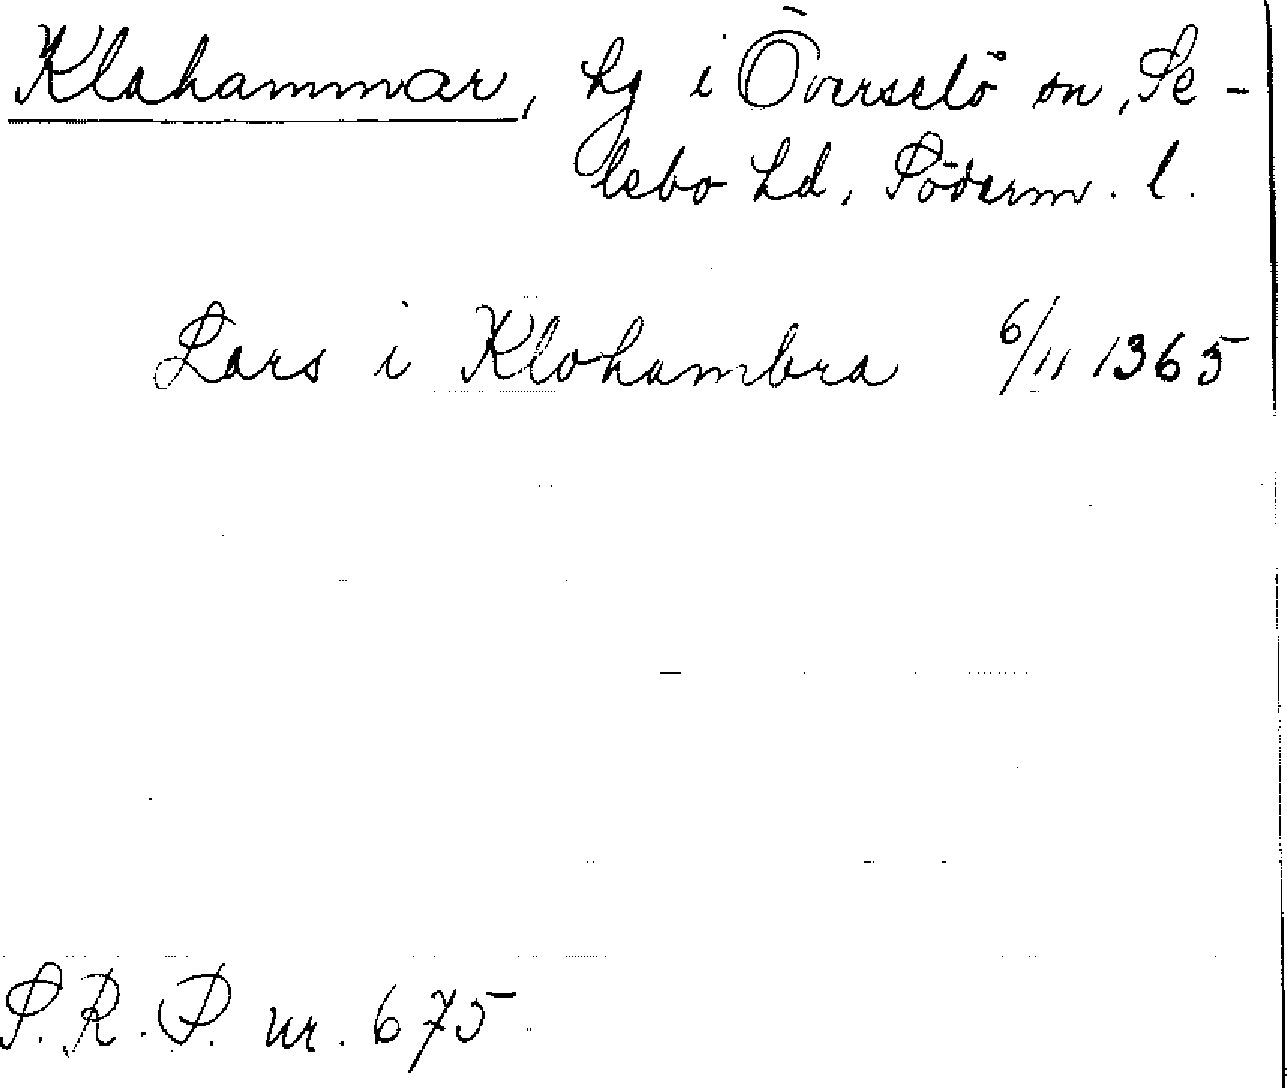 Klahammar, hg i Överselö sn, Se-
lebo hd, Söderm. l.
Lars i Klohambra 6/11 1365
S.R.P. nr. 675